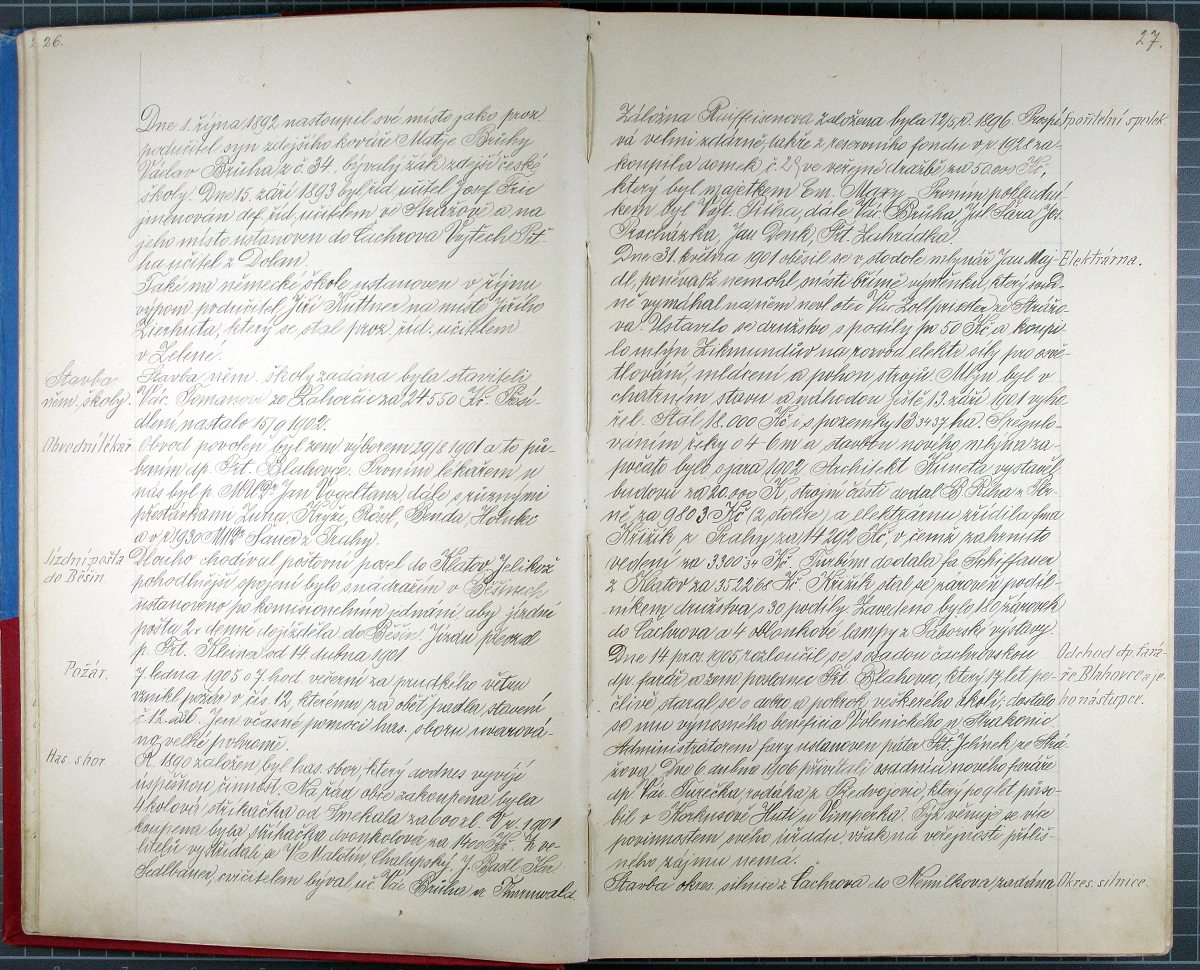 26.
Dne 1. října 1892 nastoupil své místo jako proz.
podučitel syn zdejšího kováře Matěje Brůhy
Václav Brůha z č. 34. bývalý žák zdejší české
školy. Dne 15. září 1893 byl říd. učitel Josef Fric
jmenován def. říd. učitelem ve Strážově a na
jeho místo ustanoven do Čachrova Vojtěch Pít-
ha učitel z Dolan.
Také na německé škole ustanoven v říjnu
výpom. podučitel Jiří Kuttner na místo Jiřího
Zierhuta, který se stal proz. říd. učitelem
v Zelené.
Stavba
něm. školy.
Stavba něm. školy zadána byla staviteli
Vác. Tomanovi ze Zahorčic za 24 550 Kč. Přesí-
dlení nastalo 15/9 1902.
Obvodní lékař.
Obvod povolen byl zem. výborem 29/8 1901 a to při-
bením dp. Frt. Blahovce. Prvním lékařem u
nás byl p. MUDr Jan Vogeltanz, dále s různými
přestávkami Zuna, Kryže, Rössl, Benda, Holubec
a v r. 1930 MUDr Sauer z Prahy.
Jízdní pošta
do Běšin.
Dlouho chodíval poštovní posel do Klatov. Jelikož
pohodlnější spojení bylo s nádražím v Běšinech
ustanoveno po komisionelním jednání, aby jízdní
pošta 2x denně dojížděla do Běšin. Jízdu převzal
p. Frt. Kleiner od 14 dubna 1901.
Požár.
7 ledna 1905 o 7 hod večerní za prudkého větru
vznikl požár v čís. 12, kterému za oběť padla stavení
č. 12. a 36. Jen včasné pomoci has. sboru uvarová-
no velké pohromě.
Has. sbor.
R. 1890 založen byl has. sbor, který dodnes vyvíjí
úspěšnou činnost. Na řád obce zakoupena byla
4 kolová stříkačka od Smekala za 600 zl. V r. 1901
koupena byla stříkačka dvoukolová za 1400 Kč. Z ve-
litelů vystřídali se V. Matous, Chalupský, J. Bastl, Kar.
Sedlbauer, cvičitelem býval uč. Vác. Brůha a Thurnwald.
27.
Záložna Raiffeisenova založena byla 12/5 r. 1896. Prospí-
Spořitelní spolek
vá velmi zdárně, takže z reservního fondu v r. 1928 za-
koupila domek č. 29 ve veřejné dražbě za 50.000 Kč,
který byl majetkem Em. Maxy. Prvním pokladní-
kem byl Vojt. Pitha, dále Vác. Brůha, Jul. Sára, Jos.
Procházka, Jan Denk, Frt. Zahrádka.
Elektrárna.
Dne 31. května 1901 oběsil se v stodole mlynář Jan Maj-
dl, poněvadž nemohl snésti břímě výměnku, který soud-
ně vymáhal na něm nevl. otec Vác. Zollpriester ze Strážo-
va. Ustavilo se družstvo s podíly po 50 Kč a koupi-
lo mlýn Zikmundův na rozvod elektr. síly pro osvě-
tlování, mlácení a pohon strojů. Mlýn byl v
chatrném stavu a náhodou ještě 13. září 1901 vyho-
řel. Stál 18.000 Kč i s pozemky 13 34 37 ha. S regulo-
váním řeky o 4-6 m a stavbou nového mlýna za-
počato bylo s jara 1902. Architekt Kuneta vystavěl
budovu za 20.000 K, strojní části dodal B. Rába z Br-
ně za 9803 Kč (2 stolice) a elektrárnu zřídila fma
Křižík z Prahy za 14292 Kč v čemž zahrnuto
vedení za 3300 34 Kč. Turbinu dodala fa Schiffauer
z Klatov za 3522 68 Kč. Křižík stal se zároveň podíl-
níkem družstva s 30 podíly. Zavedeno bylo 180 žárovek
do Čachrova a 4 obloukové lampy z Táborské výstavy.
Odchod dp. fará-
ře Blahovce a je-
ho nástupce.
Dne 14 pros. 1905 rozloučil se s osadou čachrovskou
dp. farář a zem. poslanec Frt. Blahovec, který 17 let pe-
člivě staral se o dobro a pokrok veškerého okolí; dostalo
se mu výnosného beneficia Volenického u Strakonic.
Administrátorem fary ustanoven páter Frt. Jelínek ze Strá-
žova. Dne 6 dubna 1906 přivítali osadníci nového faráře
dp. Vác. Turečka, rodáka z Předvojovic, který po 9 let půso-
bil v Korkusově Huti u Vimperka. Týž věnuje se více
povinnostem svého úřadu, však na veřejnosti příliš-
ného zájmu nemá.
Stavba okres. silnice z Čachrova do Nemilkova, zadána
Okres. silnice